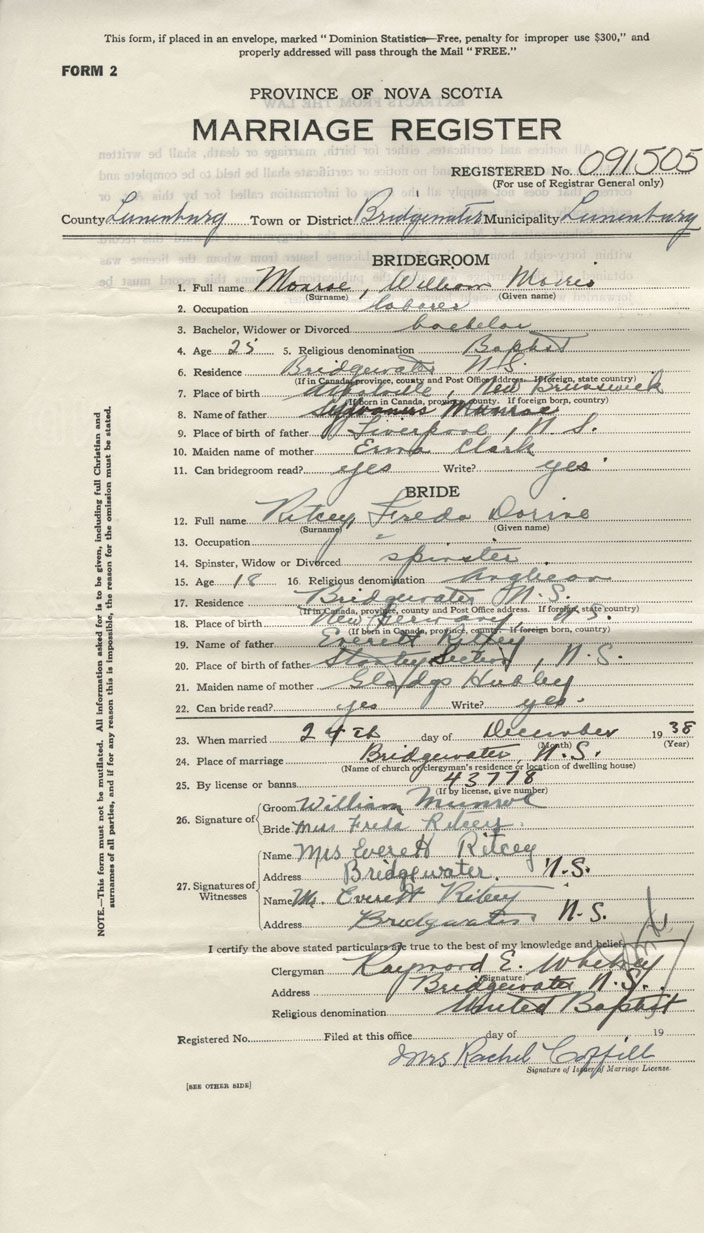 This form, if placed in an envelope, marked "Dominion Statistics—Free, penalty for improper use $300," and
properly addressed will pass through the Mail "FREE."
FORM 2
PROVINCE OF NOVA SCOTIA
MARRIAGE REGISTER
REGISTERED No. 091505
(For use of Registrar General only)
County Lunenburg Town or District Bridgewater Municipality Lunenburg
BRIDEGROOM
1. Full name Monroe, William Morris
(Surname) (Given name)
2. Occupation laborer
3. Bachelor, Widower or Divorced bachelor
4. Age 25 5. Religious denomination Baptist
6. Residence Bridgewater N.S.
(If in Canada, province, county and Post Office address. If foreign, state country)
7. Place of birth New Brunswick
(If born in Canada, province, county. If foreign born, country)
8. Name of father Sylvanus Munroe
9. Place of birth of father Liverpool, N.S.
10. Maiden name of mother Erma Clark
11. Can bridegroom read? yes Write? yes
BRIDE
12. Full name Ritcey, Freda Dorine
(Surname) (Given name)
13. Occupation "
14. Spinster, Widow or Divorced spinster
15. Age 18 16. Religious denomination Anglican
17. Residence Bridgewater N.S.
(If in Canada, province, county and Post Office address. If foreign, state country)
18. Place of birth New Germany, N.S.
(If born in Canada, province, county. If foreign born, country)
19. Name of father Everett Ritcey
20. Place of birth of father Stanley Section, N.S.
21. Maiden name of mother Gladys Hubley
22. Can bride read? yes Write? yes
23. When married 24th day of December 1938
(Month) (Year)
24. Place of marriage Bridgewater, N.S.
(Name of church or clergyman's residence or location of dwelling house)
25. By license or banns 43778
(If by license, give number)
26. Signature of Groom William Munroe
Bride Miss Freda Ritcey
27. Signatures of Witnesses
Name Mrs Everett Ritcey
Address Bridgewater, N.S.
Name Mr. Everett Ritcey
Address Bridgewater N.S.
I certify the above stated particulars are true to the best of my knowledge and belief,
Clergyman Raymond E. Whitney
(Signature)
Address Bridgewater N.S.
Religious denomination United Baptist
Registered No. Filed at this office day of 19
Mrs Rachel Coffill
Signature of Issuer of Marriage License.
[SEE OTHER SIDE]
NOTE.—This form must not be mutilated. All information asked for is to be given, including full Christian and
surnames of all parties, and if for any reason this is impossible, the reason for the omission must be stated.